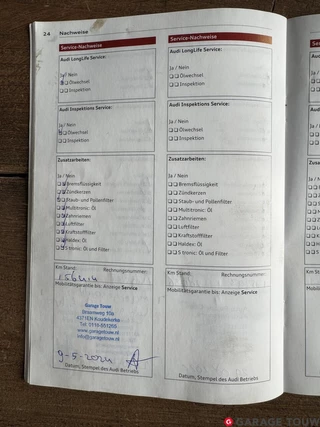 24 Nachweise
Service-Nachweise
Audi LongLife Service:
Ja / Nein
Ölwechsel
Inspektion
Audi Inspektions Service:
Ja / Nein
Ölwechsel
Inspektion
Zusatzarbeiten:
Ja / Nein
Bremsflüssigkeit
Zündkerzen
Staub- und Pollenfilter
Multitronic: Öl
Zahnriemen
Luftfilter
Kraftstofffilter
Haldex: Öl
S tronic: Öl und Filter
Km Stand: Rechnungsnummer:
Mobilitätsgarantie bis: Anzeige Service
Garage Touw
4371EN Koudekerke
Tel: 0118-551259
www.garagetouw.nl
info@garagetouw.nl
9-5-2024
Datum, Stempel des Audi Betriebs
Service-Nachweise
Audi LongLife Service:
Ja / Nein
Ölwechsel
Inspektion
Audi Inspektions Service:
Ja / Nein
Ölwechsel
Inspektion
Zusatzarbeiten:
Ja / Nein
Bremsflüssigkeit
Zündkerzen
Staub- und Pollenfilter
Multitronic: Öl
Zahnriemen
Luftfilter
Kraftstofffilter
Haldex: Öl
S tronic: Öl und Filter
Km Stand: Rechnungsnummer:
Mobilitätsgarantie bis: Anzeige Service
Datum, Stempel des Audi Betriebs
GARAGE TOUW